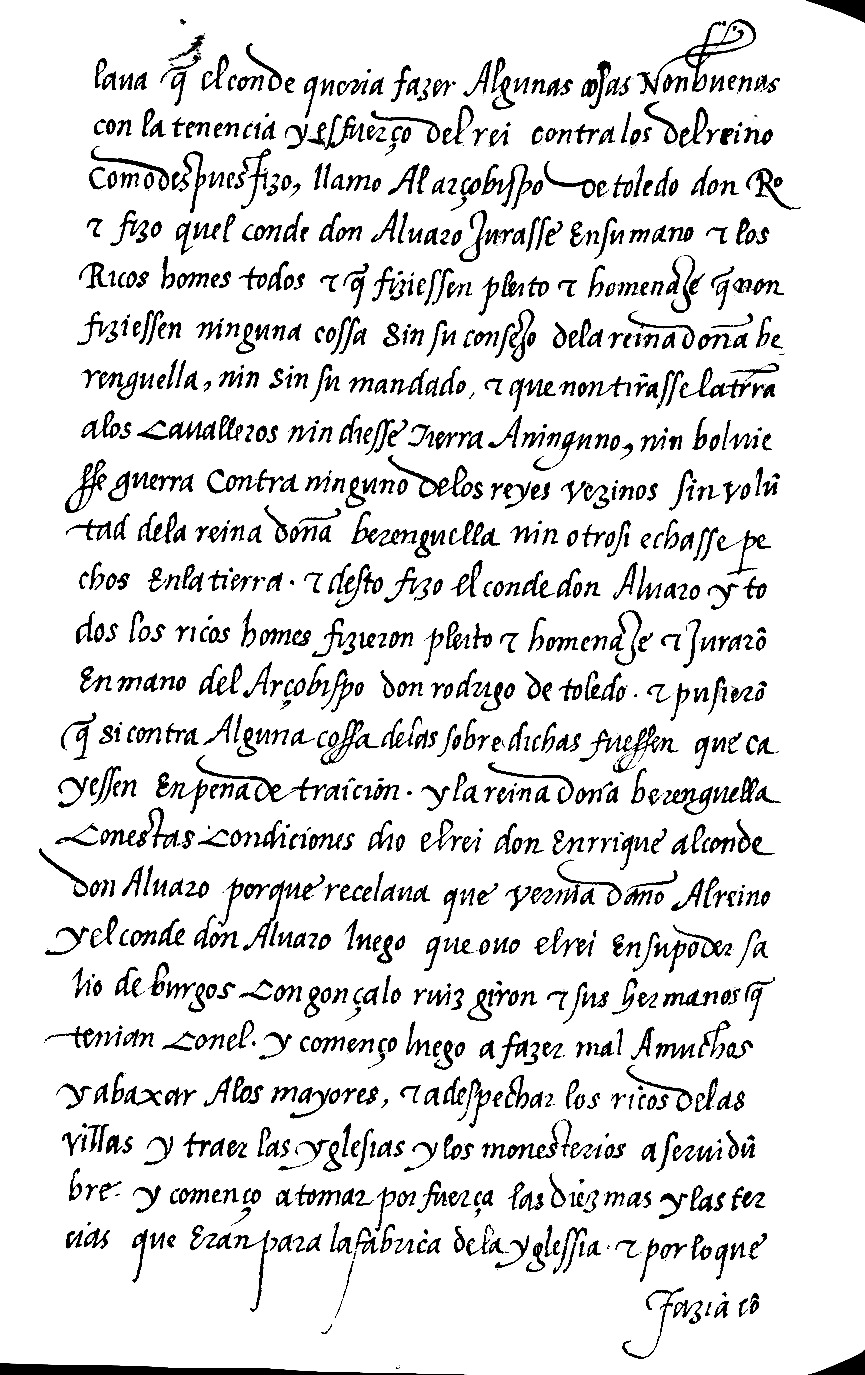 laua q̃ el conde queria fazer Algunas cosas Non buenas
con la tenencia y esfuerço del rei contra los del reino
Como despues fizo, llamo Al arçobispo de toledo don Rº
τ fizo quel conde don Alvaro Jurasse En su mano τ los
Ricos homes todos τ q̃ fiziessen pleito τ homenaJe q̃ non
fiziessen ninguna cossa Sin su conseJo de la reina doña be
renguella, nin Sin su mandado, τ que non tirasse la trr̃a
a los Cavalleros nin diesse Tierra A ninguno, nin bolvie
sse guerra Contra ninguno de los reyes vezinos sin volũ
tad de la reina doña berenguella nin otrosi echasse pe
chos En la tierra. τ desto fizo el conde don Alvaro y to
dos los ricos homes fizieron pleito τ homenaJe τ Jurarõ
En mano del Arçobispo don rodrigo de toledo. τ pusierõ
q̃ si contra Alguna cossa de las sobre dichas fuessen que ca
yessen En pena de traición. y la reina doña berenguella
Con estas Condiciones dio el rei don Enrrique al conde
don Alvaro porque recelava que vernia daño Al reino
y el conde don Alvaro luego que ovo el rei En su poder sa
lio de burgos Con gonçalo ruiz giron τ sus hermanos q̃
tenian Con el. y començo luego a fazer mal A muchos
y abaxar A los mayores, τ a despechar los ricos de las
villas y traer las yglesias y los monesterios a servidũ
bre. y començo a tomar por fuerça las diezmas y las ter
cias que Eran para la fabrica de la yglessia. τ por lo que
fazia cõ